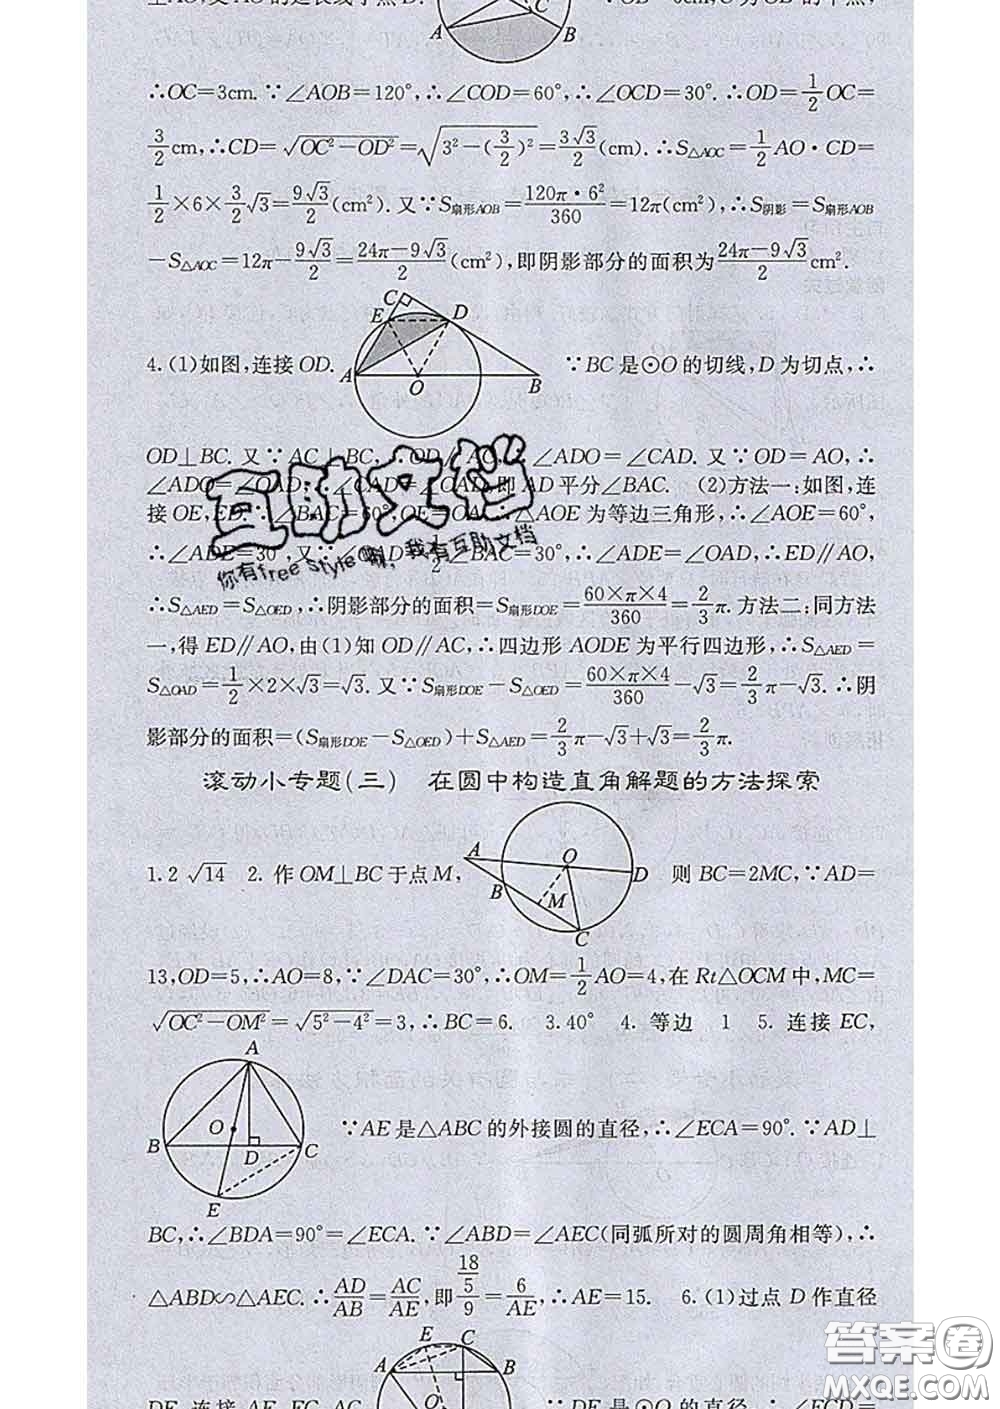 ∴OC=3cm. ∵∠AOB=120°,∴∠COD=60°,∴∠OCD=30°. ∴OD=1/2 OC=
3/2 cm,∴CD=√(OC²-OD²)=√(3²-(3/2)²)=3√3/2(cm). ∴S△AOC=1/2 AO·CD=
1/2×6×3/2√3=9√3/2(cm²). 又∵S扇形AOB=120π·6²/360=12π(cm²),∴S阴影=S扇形AOB
-S△AOC=12π-9√3/2=(24π-9√3)/2(cm²),即阴影部分的面积为(24π-9√3)/2 cm².
C E D A O B
4.(1)如图,连接OD. ∵BC是⊙O的切线,D为切点,∴
OD⊥BC. 又∵AC⊥BC,∴OD∥AC,∴∠ADO=∠CAD. 又∵OD=AO,∴
∠ADO=∠OAD,∴∠CAD=∠OAD,即AD平分∠BAC. (2)方法一:如图,连
接OE,ED. ∵∠BAC=60°,OE=OA,∴△AOE为等边三角形,∴∠AOE=60°,
∴∠ADE=30°. 又∵∠OAD=1/2∠BAC=30°,∴∠ADE=∠OAD,∴ED∥AO,
∴S△AED=S△OED,∴阴影部分的面积=S扇形DOE=60×π×4/360=2/3π. 方法二:同方法
一,得ED∥AO,由(1)知OD∥AC,∴四边形AODE为平行四边形,∴S△AED=
S△OAD=1/2×2×√3=√3. 又∵S扇形DOE-S△OED=60×π×4/360-√3=2/3π-√3. ∴阴
影部分的面积=(S扇形DOE-S△OED)+S△AED=2/3π-√3+√3=2/3π.
滚动小专题(三) 在圆中构造直角解题的方法探索
A O B M D C
1.2√14 2. 作OM⊥BC于点M, 则BC=2MC,∵AD=
13,OD=5,∴AO=8,∵∠DAC=30°,∴OM=1/2 AO=4,在Rt△OCM中,MC=
√(OC²-OM²)=√(5²-4²)=3,∴BC=6. 3.40° 4. 等边 1 5. 连接EC,
A O B D C E
∵AE是△ABC的外接圆的直径,∴∠ECA=90°. ∵AD⊥
BC,∴∠BDA=90°=∠ECA. ∵∠ABD=∠AEC(同弧所对的圆周角相等),∴
△ABD∽△AEC. ∴AD/AB=AC/AE,即(18/5)/9=6/AE,∴AE=15. 6.(1)过点D作直径
E C A B O
互助文档
你有free style嘛,我有互助文档
答案圈
MXQE.COM